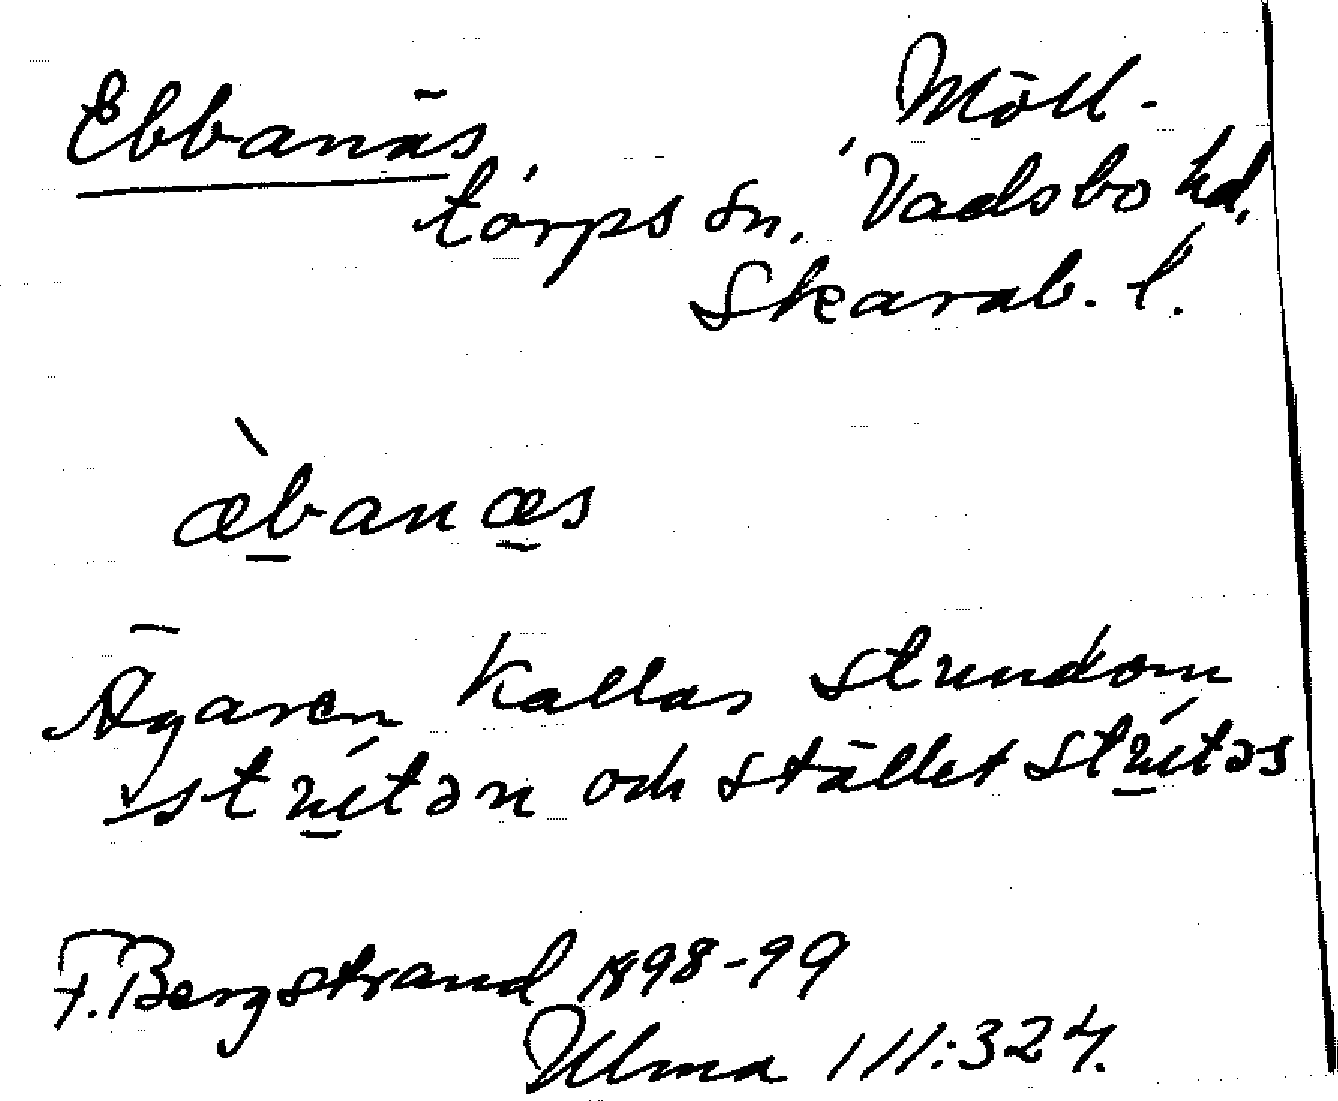 Ebbanäs Möll-
torps sn. Vadsbo hd,
Skarab. l.
æ̀banæs
Ägaren kallas stundom
strútən och stället strútəs
F. Bergstrand 1898-99
Ulma 111:324.